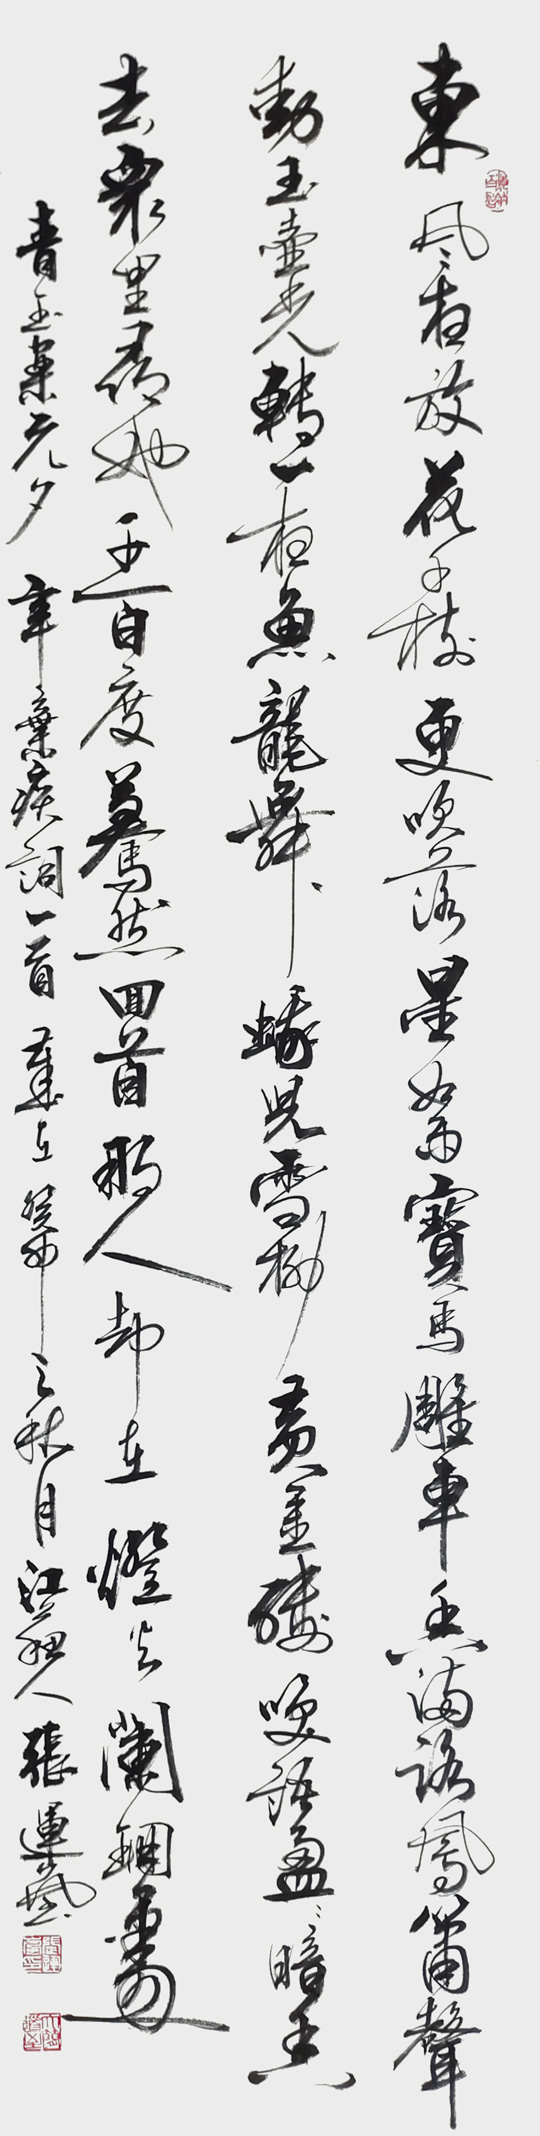 東風夜放花千樹更吹落星如雨寶馬雕車香滿路鳳簫聲
動玉壺光轉一夜魚龍舞蛾兒雪柳黃金縷笑語盈〻暗香
去衆里尋他千百度驀然回首那人却在燈火闌珊處
青玉案元夕 辛棄疾詞一首 歲在癸卯之秋月 張運